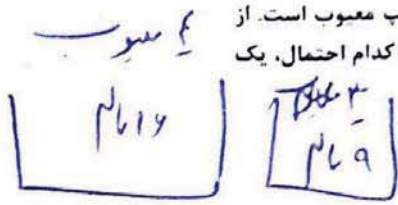 پ معیوب است. از
کدام احتمال، یک
۴ معیوب
۱۶ سالم
۳
۹ سالم